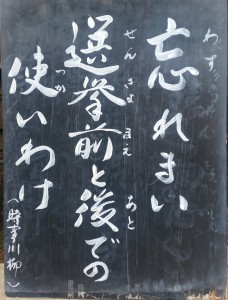 忘れまい
選挙前と後での
使いわけ
(時事川柳)
わす
せんきよ まえ あと
つか